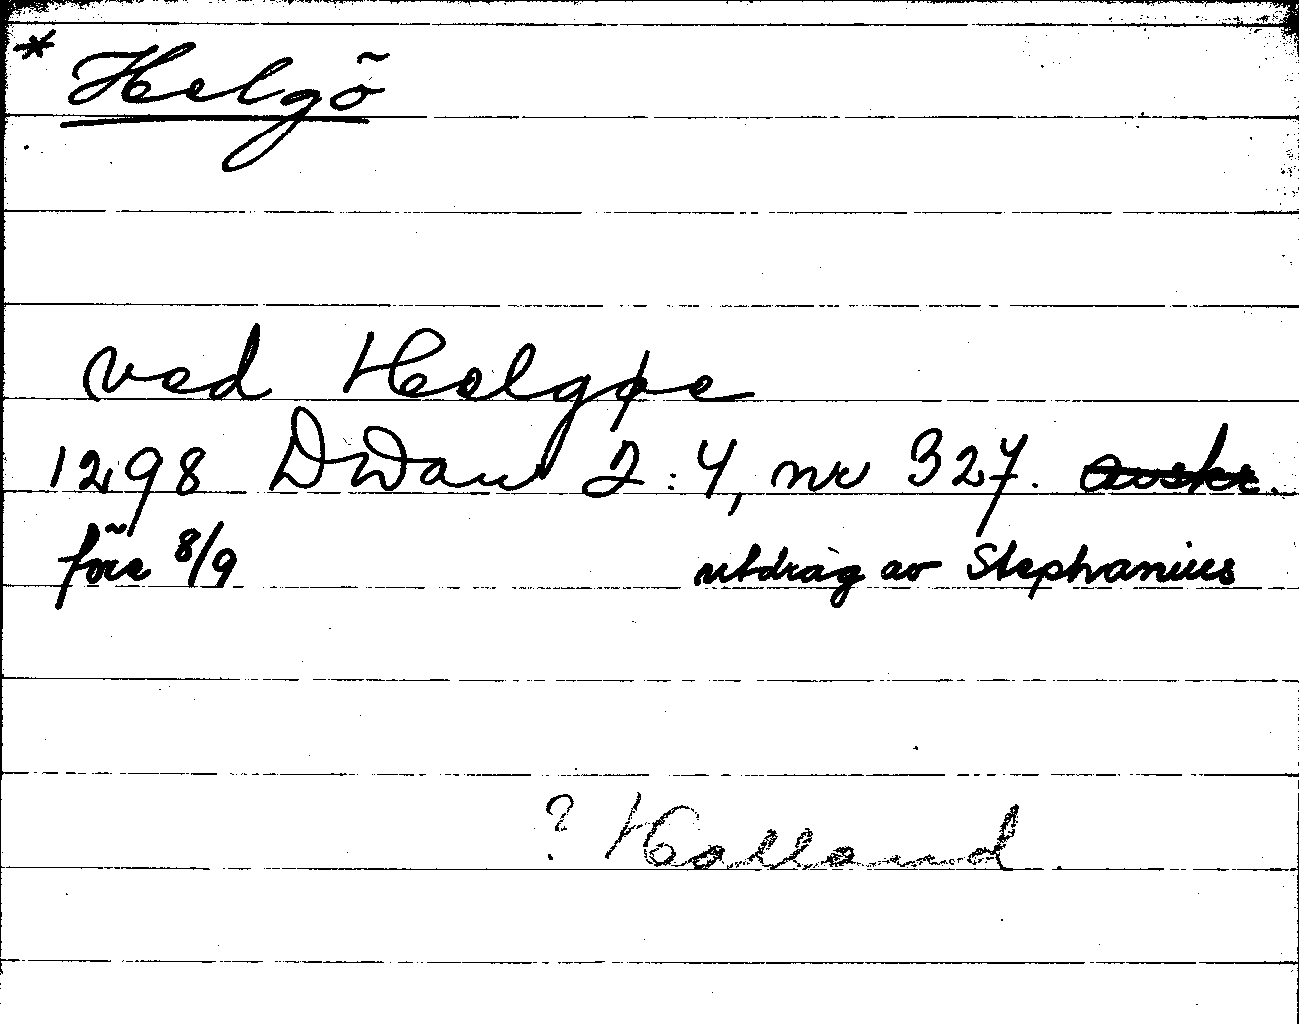 * Helgö
ved Helgøe
1298 DDan 2:4, nr 327. avskr.
före 8/9 utdrag av Stephanius
? Halland.